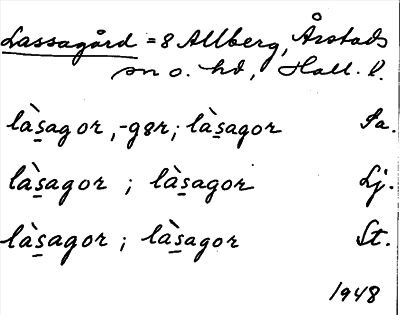 Lassagård = 8 Allberg, Årstads
sn o. hd, Hall. l.
là̀s̱agor, -gər; làs̱agor Sa.
làs̱agor ; làs̱agor Lj.
làs̱agor ; làs̱agor St.
1948